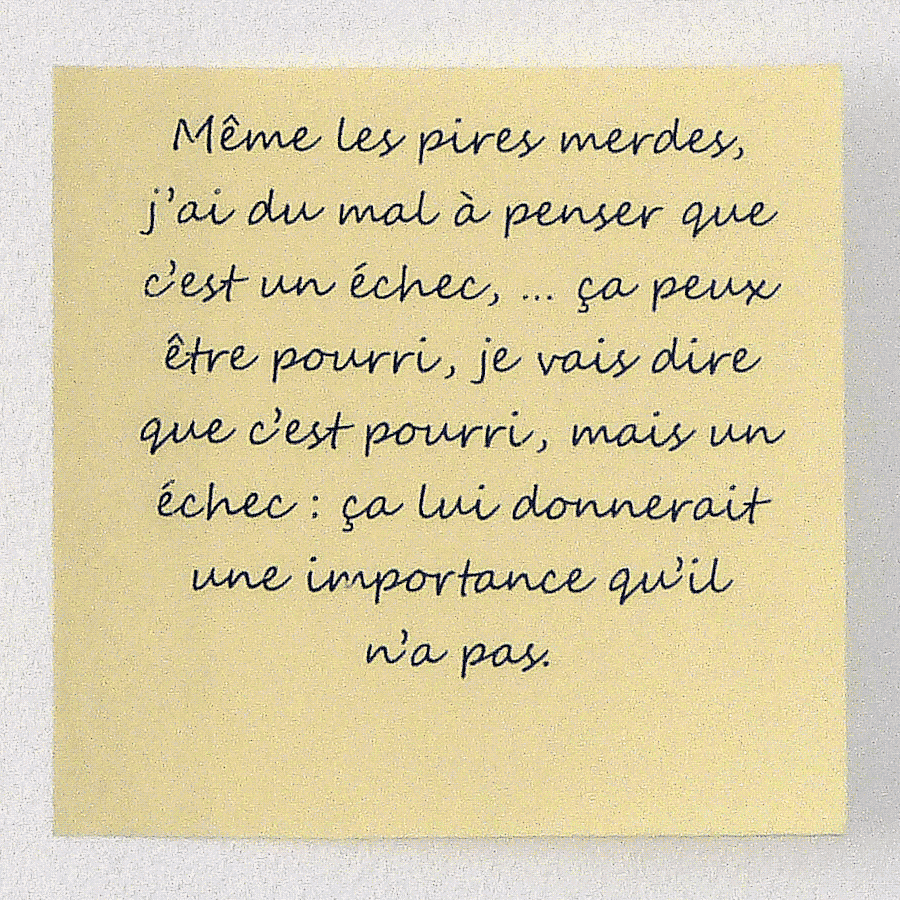 Même les pires merdes,
j'ai du mal à penser que
c'est un échec, ... ça peux
être pourri, je vais dire
que c'est pourri, mais un
échec : ça lui donnerait
une importance qu'il
n'a pas.